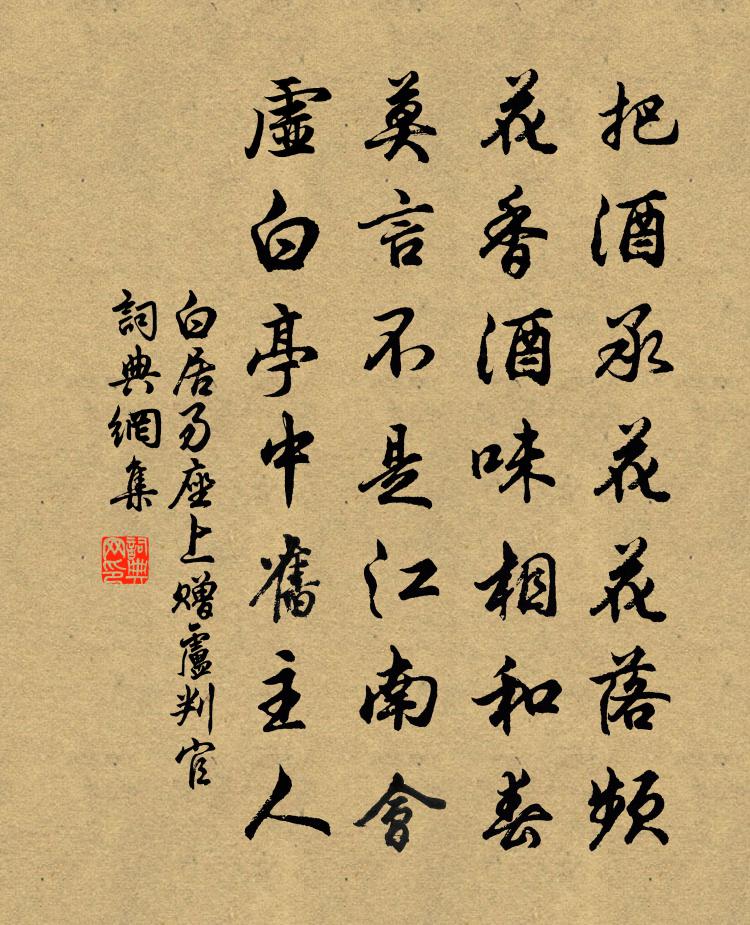 把酒承花花落頻
花香酒味相和春
莫言不是江南會
虛白亭中舊主人
白居易座上贈盧判官
詞典網集
詞典网印